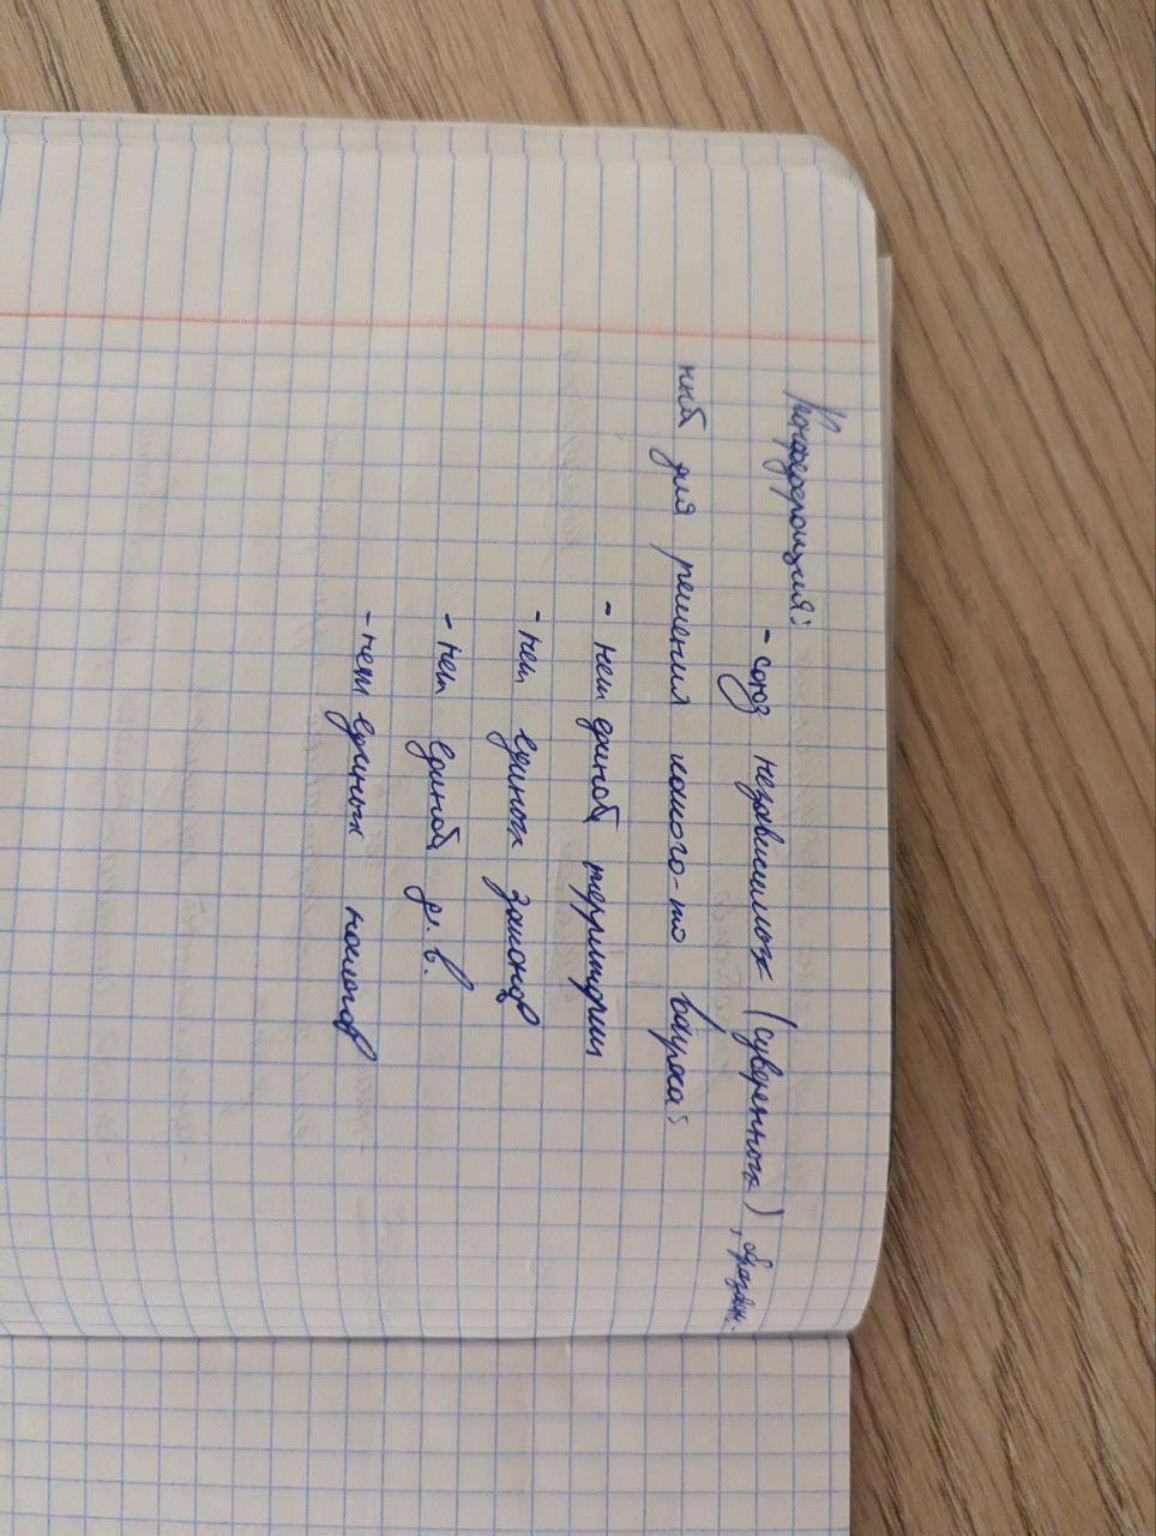 Конфедерация:
- союз независимых (суверенных), образован.
ный для решения какого-то вопроса:
- нет единой территории
- нет единых законов
- нет единой д. в.
- нет единых налогов